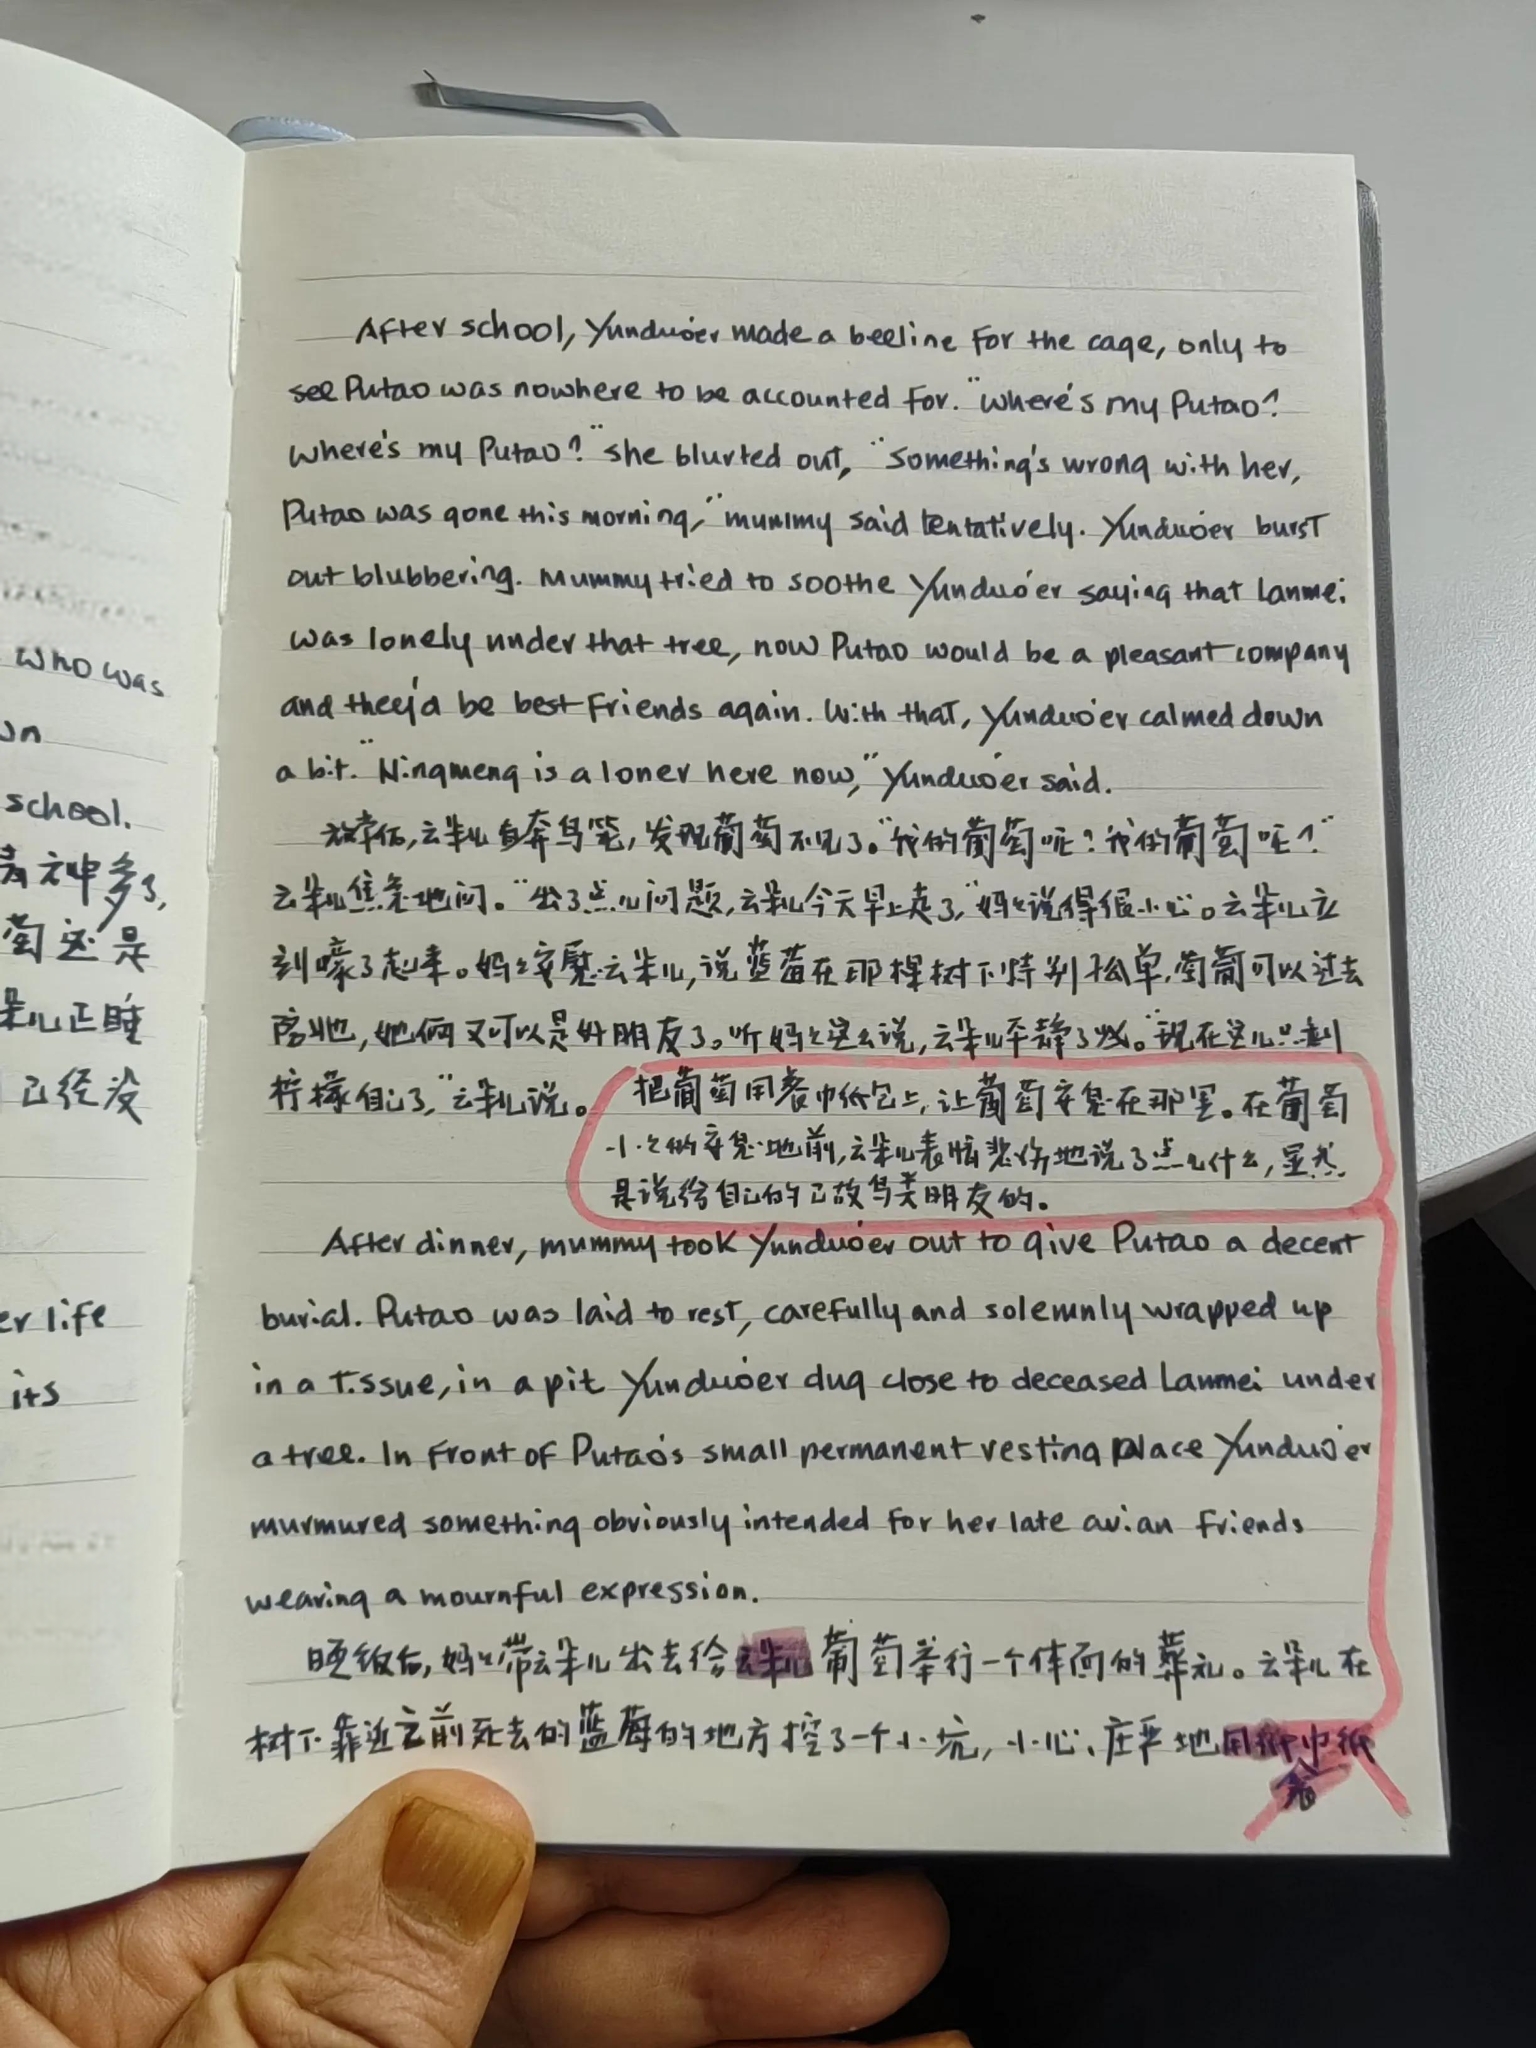 who was
wn
school.
葡还是
朵儿正睡
已经没
er life
its
After school, Yunduo'er made a beeline for the cage, only to
see Putao was nowhere to be accounted for. "Where's my Putao?
Where's my Putao?" she blurted out, "Something's wrong with her,
Putao was gone this morning," mummy said tentatively. Yunduo'er burst
out blubbering. Mummy tried to soothe Yunduo'er saying that Lanmei
was lonely under that tree, now Putao would be a pleasant company
and they'd be best friends again. With that, Yunduo'er calmed down
a bit. "Ningmeng is a loner here now," Yunduo'er said.
放学后,云朵儿直奔鸟笼,发现葡萄不见了。"我的葡萄呢?我的葡萄呢?"
云朵儿焦急地问。"出了点儿问题,云朵儿今天早上走了,"妈妈说得很小心。云朵儿立
刻嚎了起来。妈妈安慰云朵儿,说蓝莓在那棵树下特别孤单,萄葡可以过去
陪她,她俩又可以是好朋友了。听妈妈这么说,云朵儿平静了些。"现在这儿只剩
柠檬自己了,"云朵儿说。
把葡萄用餐巾纸包上,让葡萄安息在那里。在葡萄
小小的安息地前,云朵儿表情悲伤地说了点儿什么,显然
是说给自己的已故鸟类朋友的。
After dinner, mummy took Yunduo'er out to give Putao a decent
burial. Putao was laid to rest, carefully and solemnly wrapped up
in a tissue, in a pit Yunduo'er dug close to deceased Lanmei under
a tree. In front of Putao's small permanent resting place Yunduo'er
murmured something obviously intended for her late avian friends
wearing a mournful expression.
晚饭后,妈妈带云朵儿出去给云朵儿葡萄举行一个体面的葬礼。云朵儿在
树下靠近之前死去的蓝莓的地方挖了一个小坑,小心、庄严地用纸巾纸